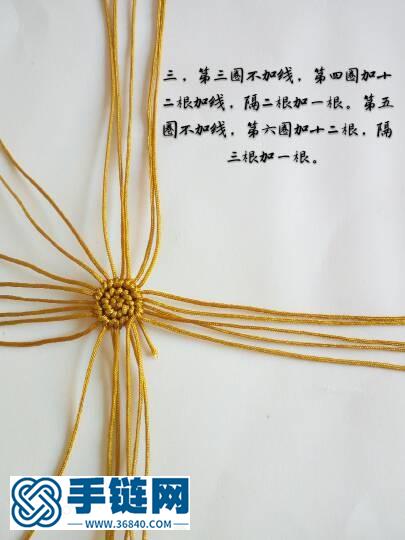 三，第三圆不加线，第四圆加十
二根加线，隔二根加一根。第五
圆不加线，第六圆加十二根，隔
三根加一根。
手链网
WWW.36840.COM